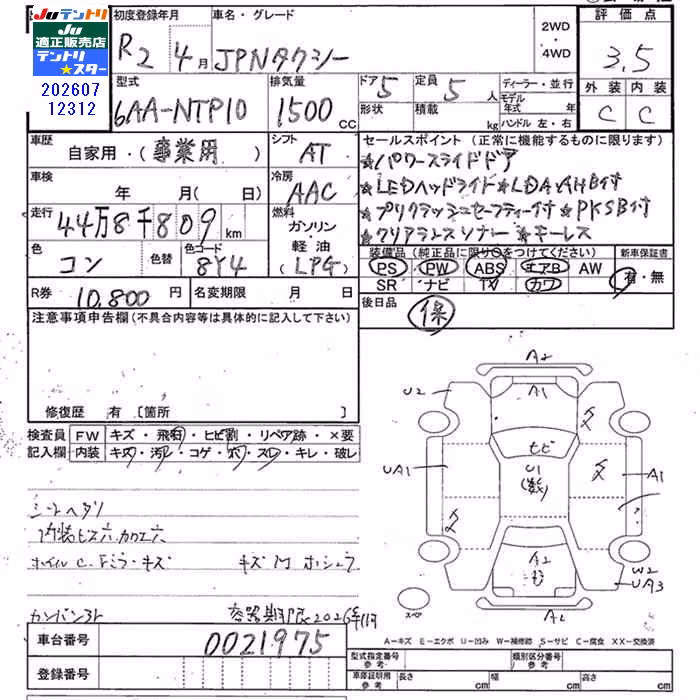 JUテントリ
JU
適正販売店
テントリ
★スター
202607
12312
初度登録年月
車名・グレード
R2 4月 JPNタクシー
2WD
・
4WD
評価点
3.5
型式
6AA-NTP10
排気量
1500 cc
ドア 5
定員 5 人
形状
積載 kg
ディーラー・並行
モデル年式 年
ハンドル 左・右
外装 内装
C C
車歴
自家用・(事業用)
シフト
AT
車検
年 月( 日)
冷房
AAC
走行
44万8千809 km
燃料
ガソリン
・
軽油
(LPG)
色
コン
色替
色コード
8Y4
R券 10,800 円
名変期限 月 日
セールスポイント (正常に機能するものに限ります)
★パワースライドドア
★LEDヘッドライト★LDA.AHB付
★プリクラッシュセーフティー付★PKSB付
★クリアランスソナー ★キーレス
装備品 (純正品に限り○をつけてください)
PS PW ABS エアB AW
SR ナビ TV カワ
新車保証書
有・無
後日品
保
注意事項申告欄(不具合内容等は具体的に記入して下さい)
修復歴 有 [箇所 ]
検査員記入欄
FW キズ・飛石・ヒビ割・リペア跡・×要
内装 キズ・汚レ・コゲ・穴・スレ・キレ・破レ
シートヘタリ
内装ビス穴.カワエ穴
ホイルC.Fミラーキズ
キズM
カンバン3ト
容器期限2026年11月
A2
A1
U2
ヒビ
U1
(数)
UA1
A1
A2
W2
UA3
スペア
車台番号
0021975
登録番号
A-キズ E-エクボ U-凹み W-補修跡 S-サビ C-腐食 XX-交換済
型式指定番号
参考
類別区分番号
参考
車庫証明用
参考
長さ cm
幅 cm
高さ cm